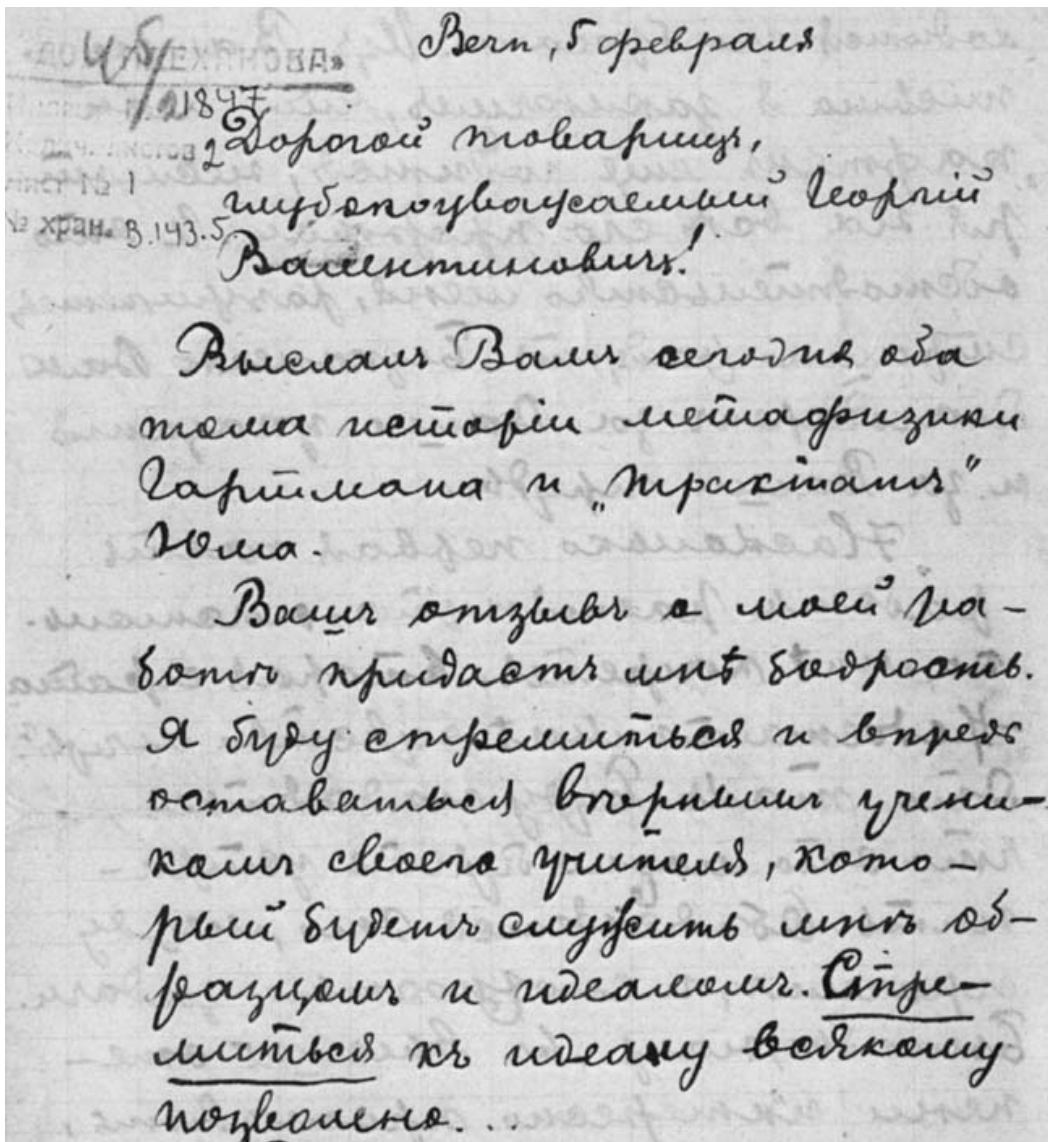 «ДОМ ПЛЕХАНОВА»
Берн, 5 февраля
1847
Дорогой товарищъ,
листов 2
лист № 1
глубокоуважаемый Георгій
№ хран. В.143.5
Валентиновичъ!
Выслалъ Вамъ сегодня оба
тома исторіи метафизики
Гартмана и „Трактатъ“
Юма.
Вашъ отзывъ о моей ра-
ботѣ придастъ мнѣ бодрость.
Я буду стремиться и впредь
оставаться вѣрнымъ учени-
комъ своего учителя, кото-
рый будетъ служить мнѣ об-
разцомъ и идеаломъ. Стре-
миться къ идеалу всякому
позволено...